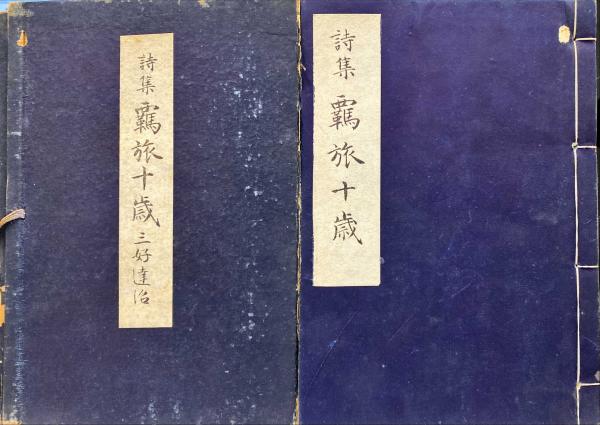 詩集 覊旅十歳 三好達治
詩集 覊旅十歳